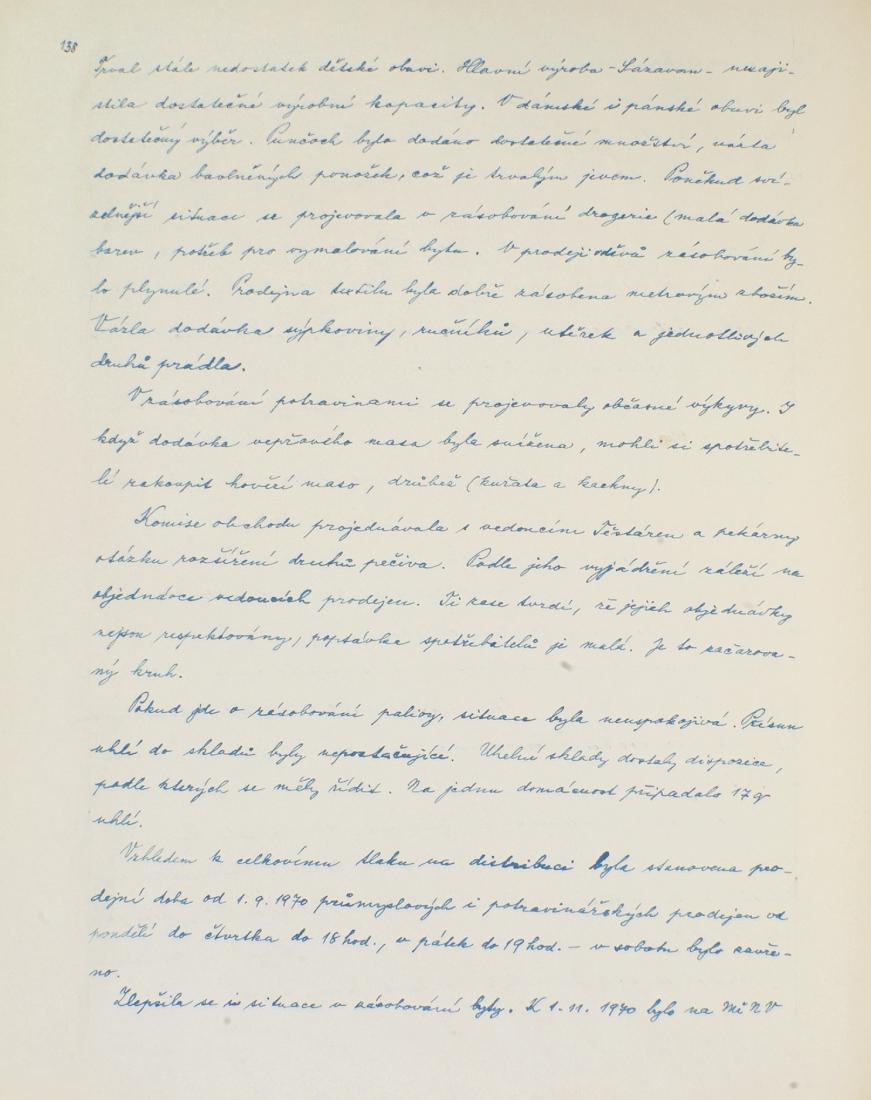 138
Trval stále nedostatek dětské obuvi. Hlavní výroba - Sázavan - nezaji-
stila dostatečné výrobní kapacity. V dámské i pánské obuvi byl
dostatečný výběr. Punčoch bylo dodáno dostatečné množství, vázla
dodávka bavlněných ponožek, což je trvalým jevem. Poněkud sví-
zelnější situace se projevovala v zásobování drogerie (malá dodávka
barev, potřeb pro vymalování bytu. V prodeji oděvů zásobování by-
lo plynulé. Prodejna textilu byla dobře zásobena metrovým zbožím.
Vázla dodávka sýpkoviny, ručníků, utěrek a jednotlivých
druhů prádla.
V zásobování potravinami se projevovaly občasné výkyvy. I
když dodávka vepřového masa byla snížena, mohli si spotřebite-
lé zakoupit hovězí maso, drůbež (kuřata a kachny).
Komise obchodu projednávala s vedoucím Těstáren a pekárny
otázku rozšíření druhů pečiva. Podle jeho vyjádření záleží na
objednávce vedoucích prodejen. Ti zase tvrdí, že jejich objednávky
nejsou respektovány, poptávka spotřebitelů je malá. Je to začarova-
ný kruh.
Pokud jde o zásobování palivy, situace byla neuspokojivá. Přísun
uhlí do skladů byly nepostačující. Uhelné sklady dostaly dispozice,
podle kterých se měly řídit. Na jednu domácnost připadalo 17 q
uhlí.
Vzhledem k celkovému tlaku na distribuci byla stanovena pro-
dejní doba od 1. 9. 1970 průmyslových i potravinářských prodejen od
pondělí do čtvrtka do 18 hod., v pátek do 19 hod. - v sobotu bylo zavře-
no.
Zlepšila se i situace v zásobování byty. K 1. 11. 1970 bylo na MěNV